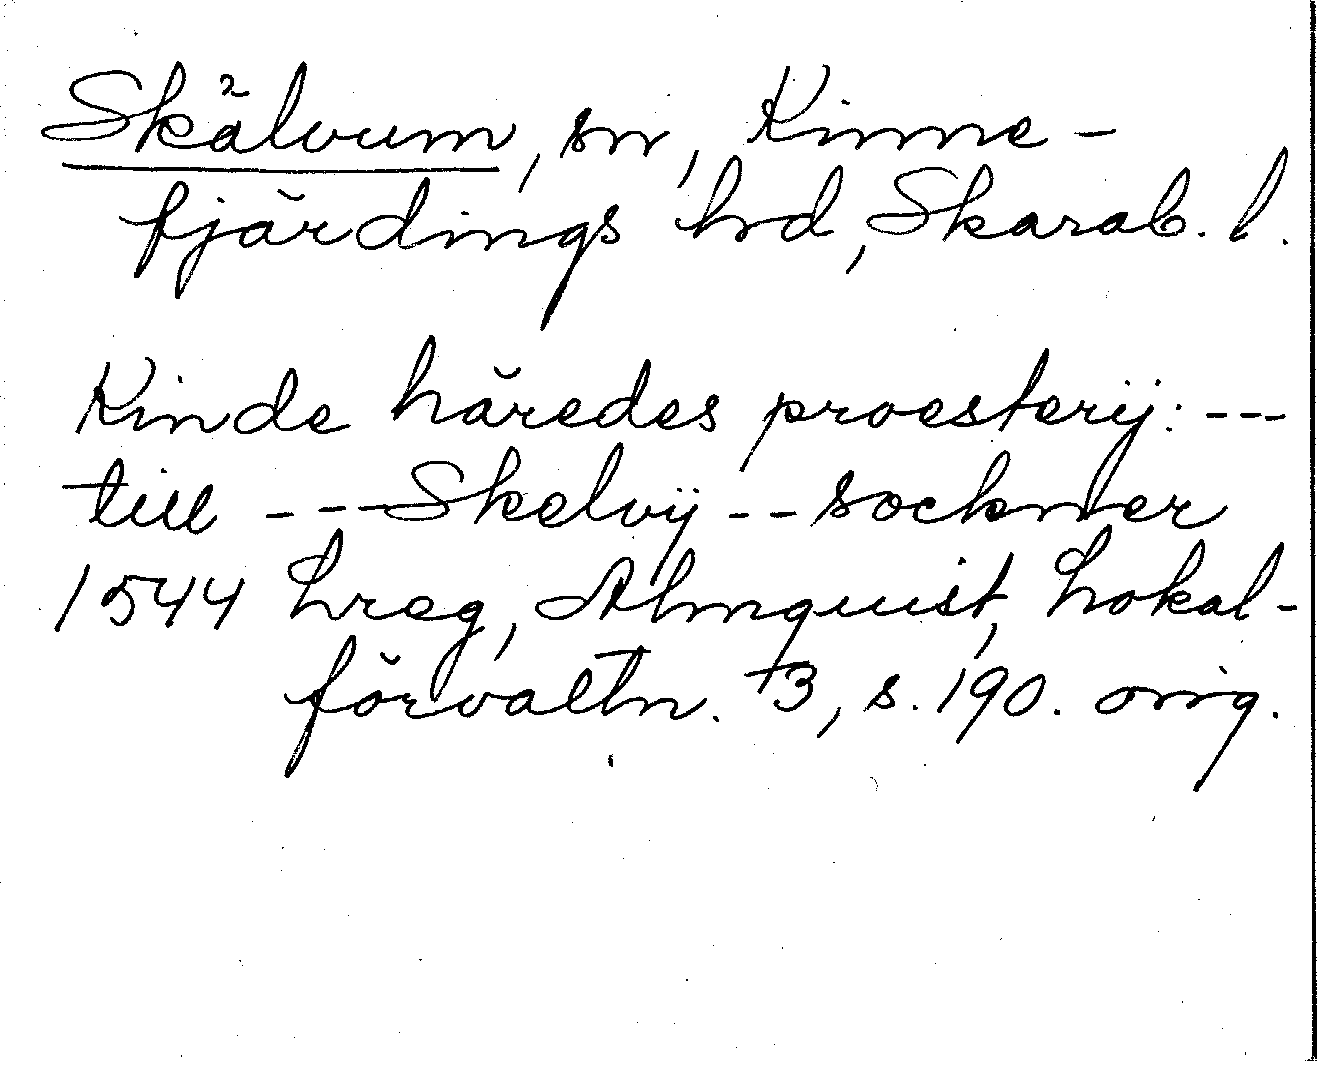 Skälvum, sn, Kinne-
fjärdings hrd, Skarab. l.
Kinde häredes proesterij: ---
till --- Skelvij -- sockner
1544 Lreg, Almquist, Lokal-
förvaltn. 3, s. 190. orig.